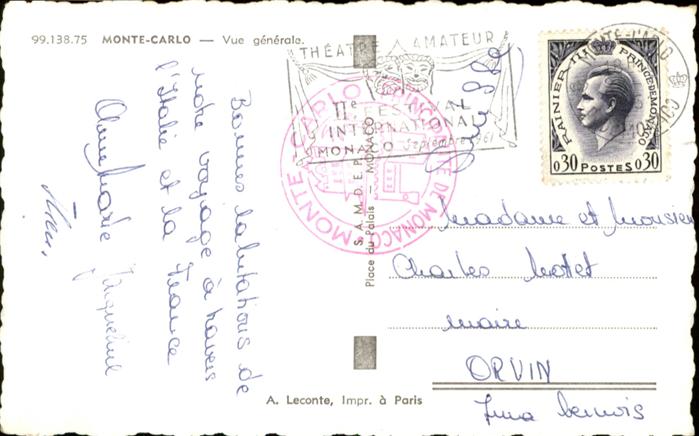 99.138.75 MONTE-CARLO — Vue générale.
THÉATRE AMATEUR
IIe FESTIVAL
INTERNATIONAL
MONACO Septembre 1961
MONTE-CARLO PRINCIPAUTÉ DE MONACO
RAINIER III PRINCE DE MONACO
0,30 POSTES 0,30
Bonnes salutations de
notre voyage à travers
l'Italie et la France
Anne Marie
Jacqueline
S. A. M. D. E. P. — MONACO
Place du Palais — MONACO
Madame et Monsieur
Charles Mottet
maire
ORVIN
Jura bernois
A. Leconte, Impr. à Paris